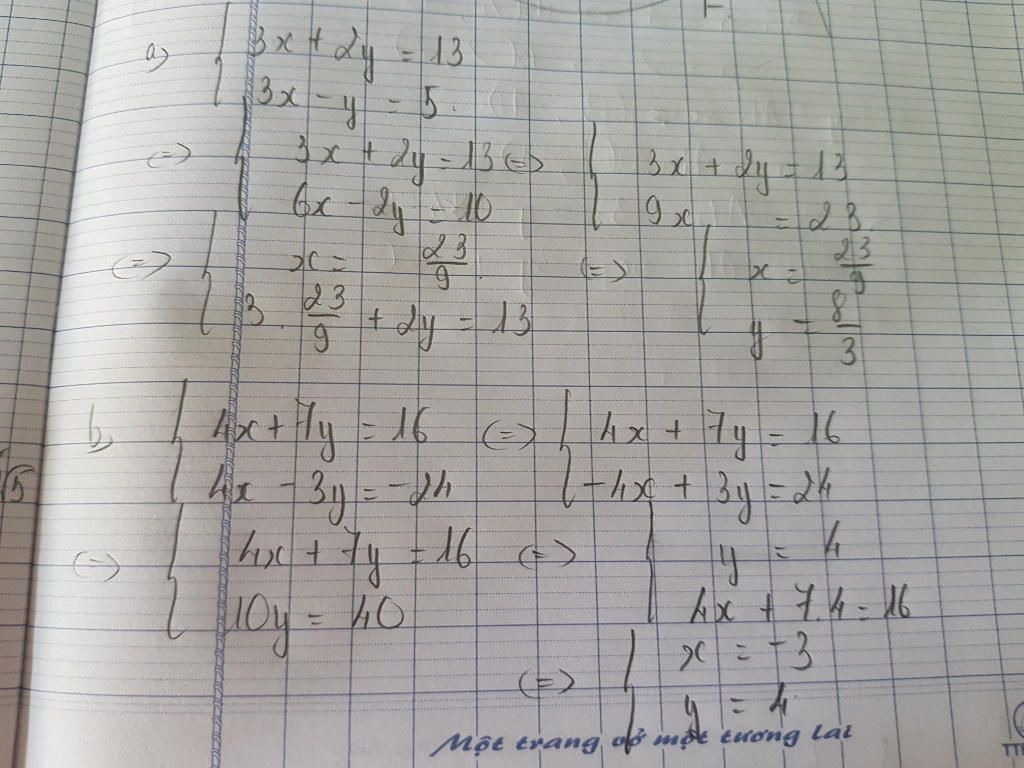 a) { 3x + 2y = 13
3x - y = 5.
<=> { 3x + 2y = 13 <=> { 3x + 2y = 13
6x - 2y = 10 9x = 23
<=> { x = 23/9 <=> { x = 23/9
3. 23/9 + 2y = 13 y = 8/3
b, { 4x + 7y = 16 <=> { 4x + 7y = 16
4x - 3y = -24 -4x + 3y = 24
√5
<=> { 4x + 7y = 16 <=> { y = 4
10y = 40 4x + 7.4 = 16
<=> { x = -3
y = 4
Một trang vở một tương lai